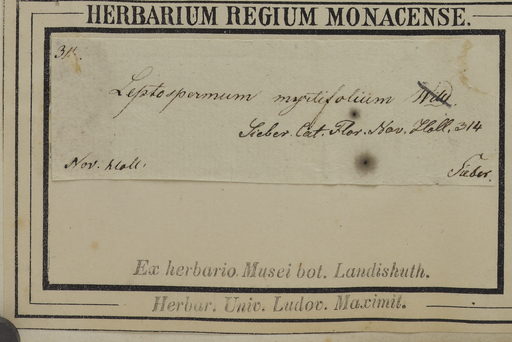 HERBARIUM REGIUM MONACENSE.
314.
Leptospermum myrtifolium
Sieber. Cat. Flor. Nov. Holl. 314
Nov. Holl. Sieber.
Ex herbario Musei bot. Landishuth.
Herbar. Univ. Ludov. Maximil.